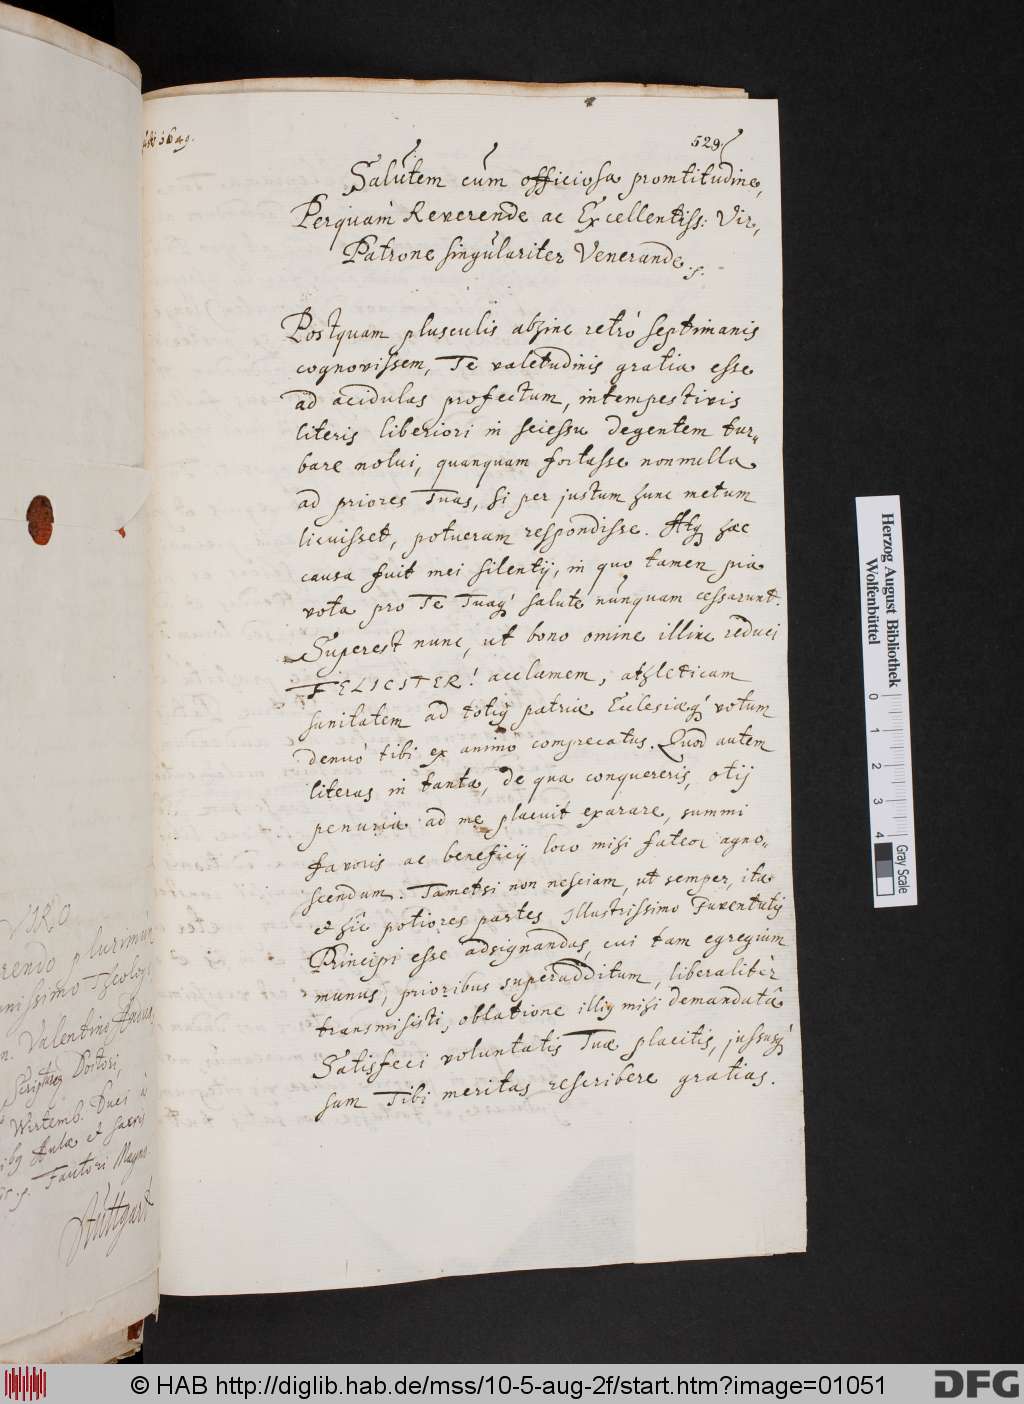 529.
Salutem cùm officiosa promtitudine,
Perquàm Reverende ac Excellentiss: Vir,
Patrone singulariter Venerande.
Postquam plusculis abhinc retrò septimanis
cognovissem, Te valetudinis gratia esse
ad acidulas profectum, intempestivis
literis liberiori in secessu degentem tur-
bare nolui, quanquam fortasse nonnulla
ad priores Tuas, si per justum hunc metum
licuisset, potueram respondisse. Atq; haec
causa fuit mei silentij, in quo tamen pia
vota pro Te Tuaq; salute nunquam cessarunt.
Superest nunc, ut bono omine illinc reduci
FELICITER! acclamem, athleticam
sanitatem ad totiq patriae Ecclesiaeq; votum
denuò tibi ex animo comprecatus. Quod autem
literas in tanta, de qua conquereris, otij
penuria ad me placuit exarare, summi
favoris ac beneficij loco mihi fateor agno-
scendum. Tametsi non nesciam, ut semper, ita
et hîc potiores partes Illustrissimo Juventutis
Principi esse adsignandas, cui tam egregium
munus, prioribus superadditum, liberalitèr
transmisisti, oblatione illiq mihi demandatâ
Satisfeci voluntatis Tuae placitis, jussusq;
sum Tibi meritas rescribere gratias.
VIRO
Theolog
Valentino Andreae,
Doctori,
Wirtemb. Duci à
Aulae et sacris
Fautori Magno
Stuttgart
Herzog August Bibliothek
Wolfenbüttel
0 1 2 3 4
Gray Scale
© HAB http://diglib.hab.de/mss/10-5-aug-2f/start.htm?image=01051
DFG